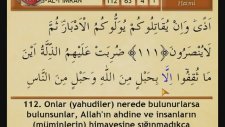 أَذًى وَإِنْ يُقَاتِلُوكُمْ يُوَلُّوكُمُ الْأَدْبَارَ ثُمَّ
لَا يُنْصَرُونَ ﴿١١١﴾ ضُرِبَتْ عَلَيْهِمُ الذِّلَّةُ أَيْنَ
مَا ثُقِفُوا إِلَّا بِحَبْلٍ مِنَ اللّٰهِ وَحَبْلٍ مِنَ النَّاسِ
112. Onlar (yahudiler) nerede bulunurlarsa
bulunsunlar, Allah'ın ahdine ve insanların
(müminlerin) himayesine sığınmadıkça